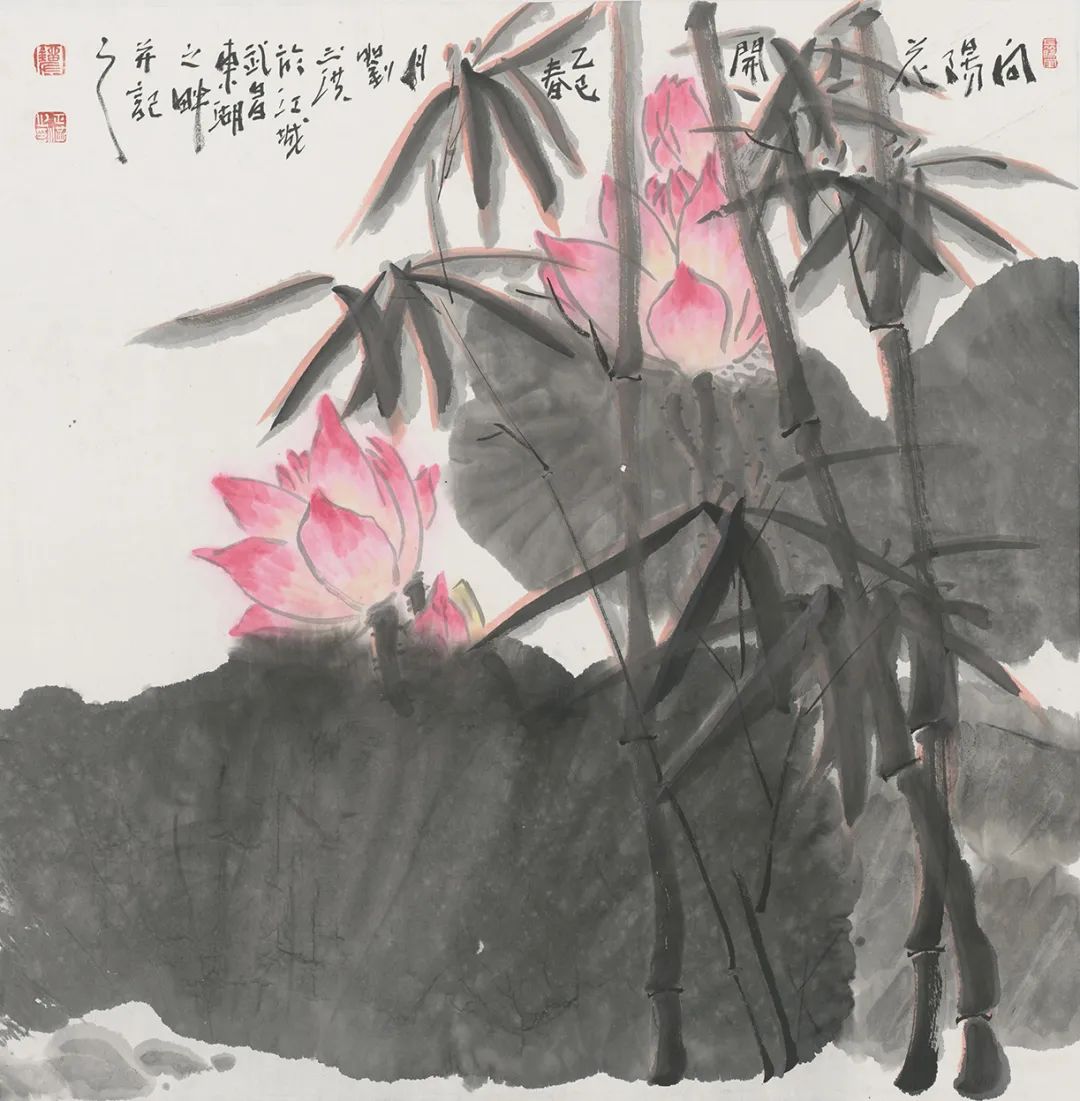 向
陽
花
開
乙巳
春
月
劉
三洪
於江城
武昌
東湖
之畔
并記
之